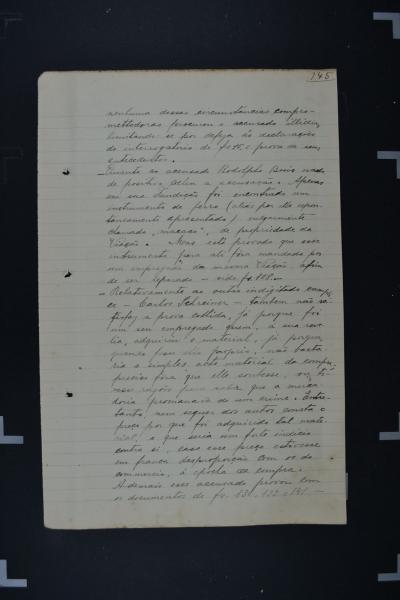 145
nenhuma dessas circumstancias compro-
mettedoras procurou o accusado illidir,
limitando-se por defeza ás declarações
do interrogatorio de fs 95, e prova de seus
antecedentes.
Emento ao accusado Rodolpho Bins nada
de positivo colheu a accusação. Apenas
em sua fundição foi encontrado um
instrumento de ferro (aliás por elle espon-
taneamente apresentado) vulgarmente
chamado "macaco", de propriedade da
Viação. Mas está provado que esse
instrumento fôra ali fôra mandado por
um empregado da mesma Viação afim
de ser reparado - vide fs 108.
Relativamente ao outro indigitado cumpli-
ce - Carlos Schreiner - tambem não sa-
tisfaz a prova colhida, já porque foi
um seu empregado quem, á sua reve-
lia, adquiriu o material, já porque,
quando fosse elle proprio, não basta-
ria o simples acto material da compra,
preciso fôra que elle soubesse, ou ti-
vesse razões para saber que a merca-
doria promanava de um crime. Entre-
tanto, nem sequer dos autos consta o
preço por que foi adquirido tal mate-
rial, o que seria um forte indicio
contra si, caso esse preço estivesse
em franca desproporção com os do
commercio, á epocha da compra.
Ademais esse accusado provou com
os documentos de fs. 131, 132 e 141 -